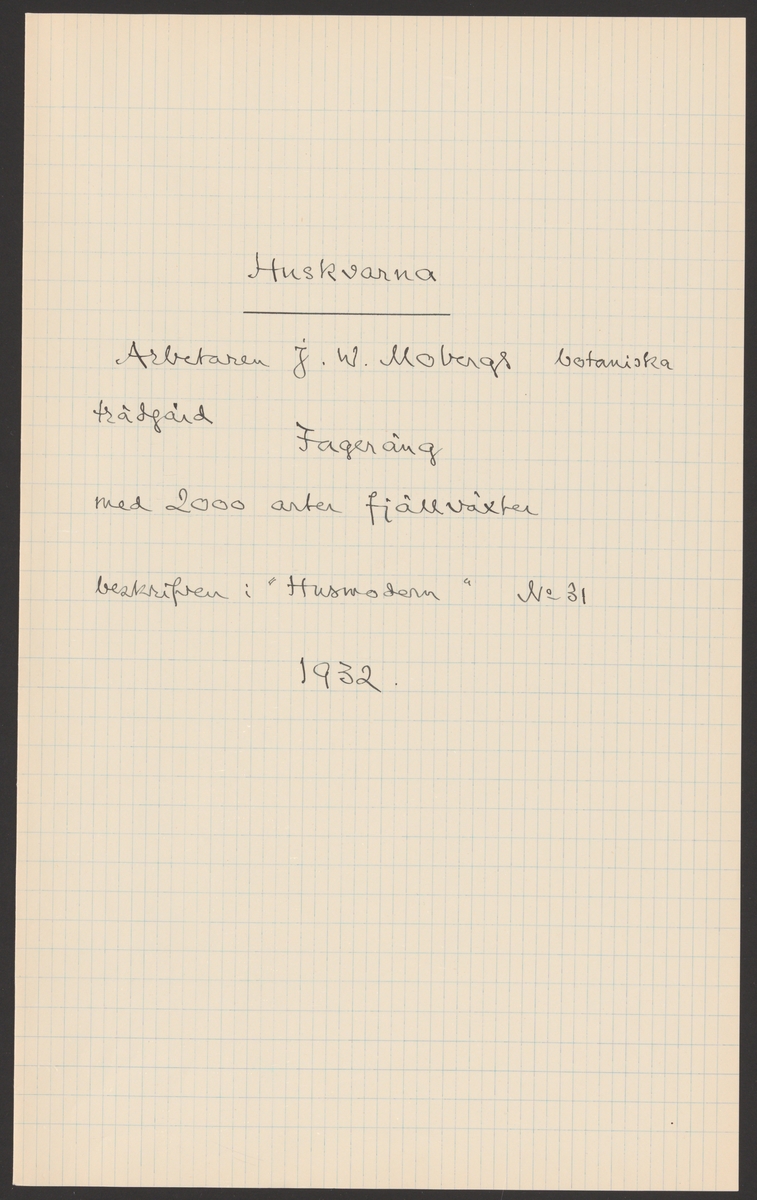 Huskvarna
Arbetaren J. W. Mobergs botaniska
trädgård
Fageräng
med 2000 arter fjällväxter
beskrifven i "Husmodern" No 31
1932.